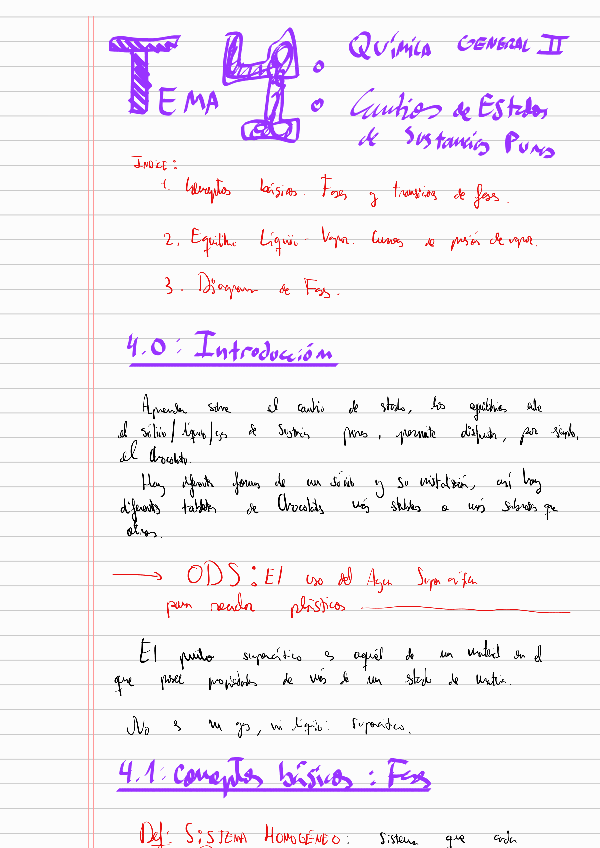 TEMA 4: QUÍMICA GENERAL II
Cambios de Estados
de Sustancias Puras
INDICE:
1. Conceptos básicos. Fases y transición de fases.
2. Equilibrio Líquido-Vapor. Curvas de presión de vapor.
3. Diagrama de Fases.
4.0: Introducción
Aprender sobre el cambio de estado, los equilibrios entre
el sólido/líquido/gas de Sustancias puras, permite disfrutar, por ejemplo,
el Chocolate.
Hay diferentes formas de un sólido y su cristalización, así hay
diferentes tabletas de Chocolates más estables o más sabrosas que
otras.
→ ODS: El uso del Agua Supercrítica
para reciclar plásticos
El punto supercrítico es aquél de un material en el
que posee propiedades de más de un estado de materia.
No es un gas, ni líquido: Supercrítico.
4.1: Conceptos básicos: Fases
Def: SISTEMA HOMOGÉNEO: Sistema que cada